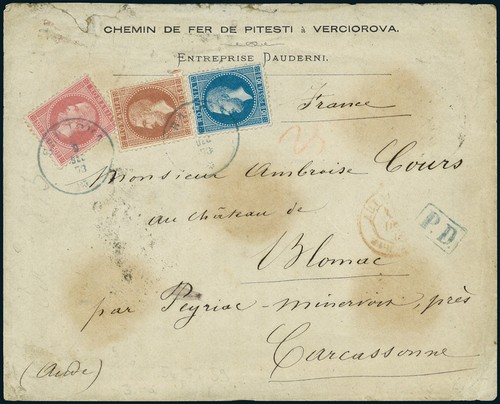 CHEMIN DE FER DE PITESTI à VERCIOROVA.
ENTREPRISE DAUDERNI.
France
Monsieur Ambroise Cours
au Château de
Blomac
par Peyriac-Minervois, près
Carcassonne
(Aude)
P.D.